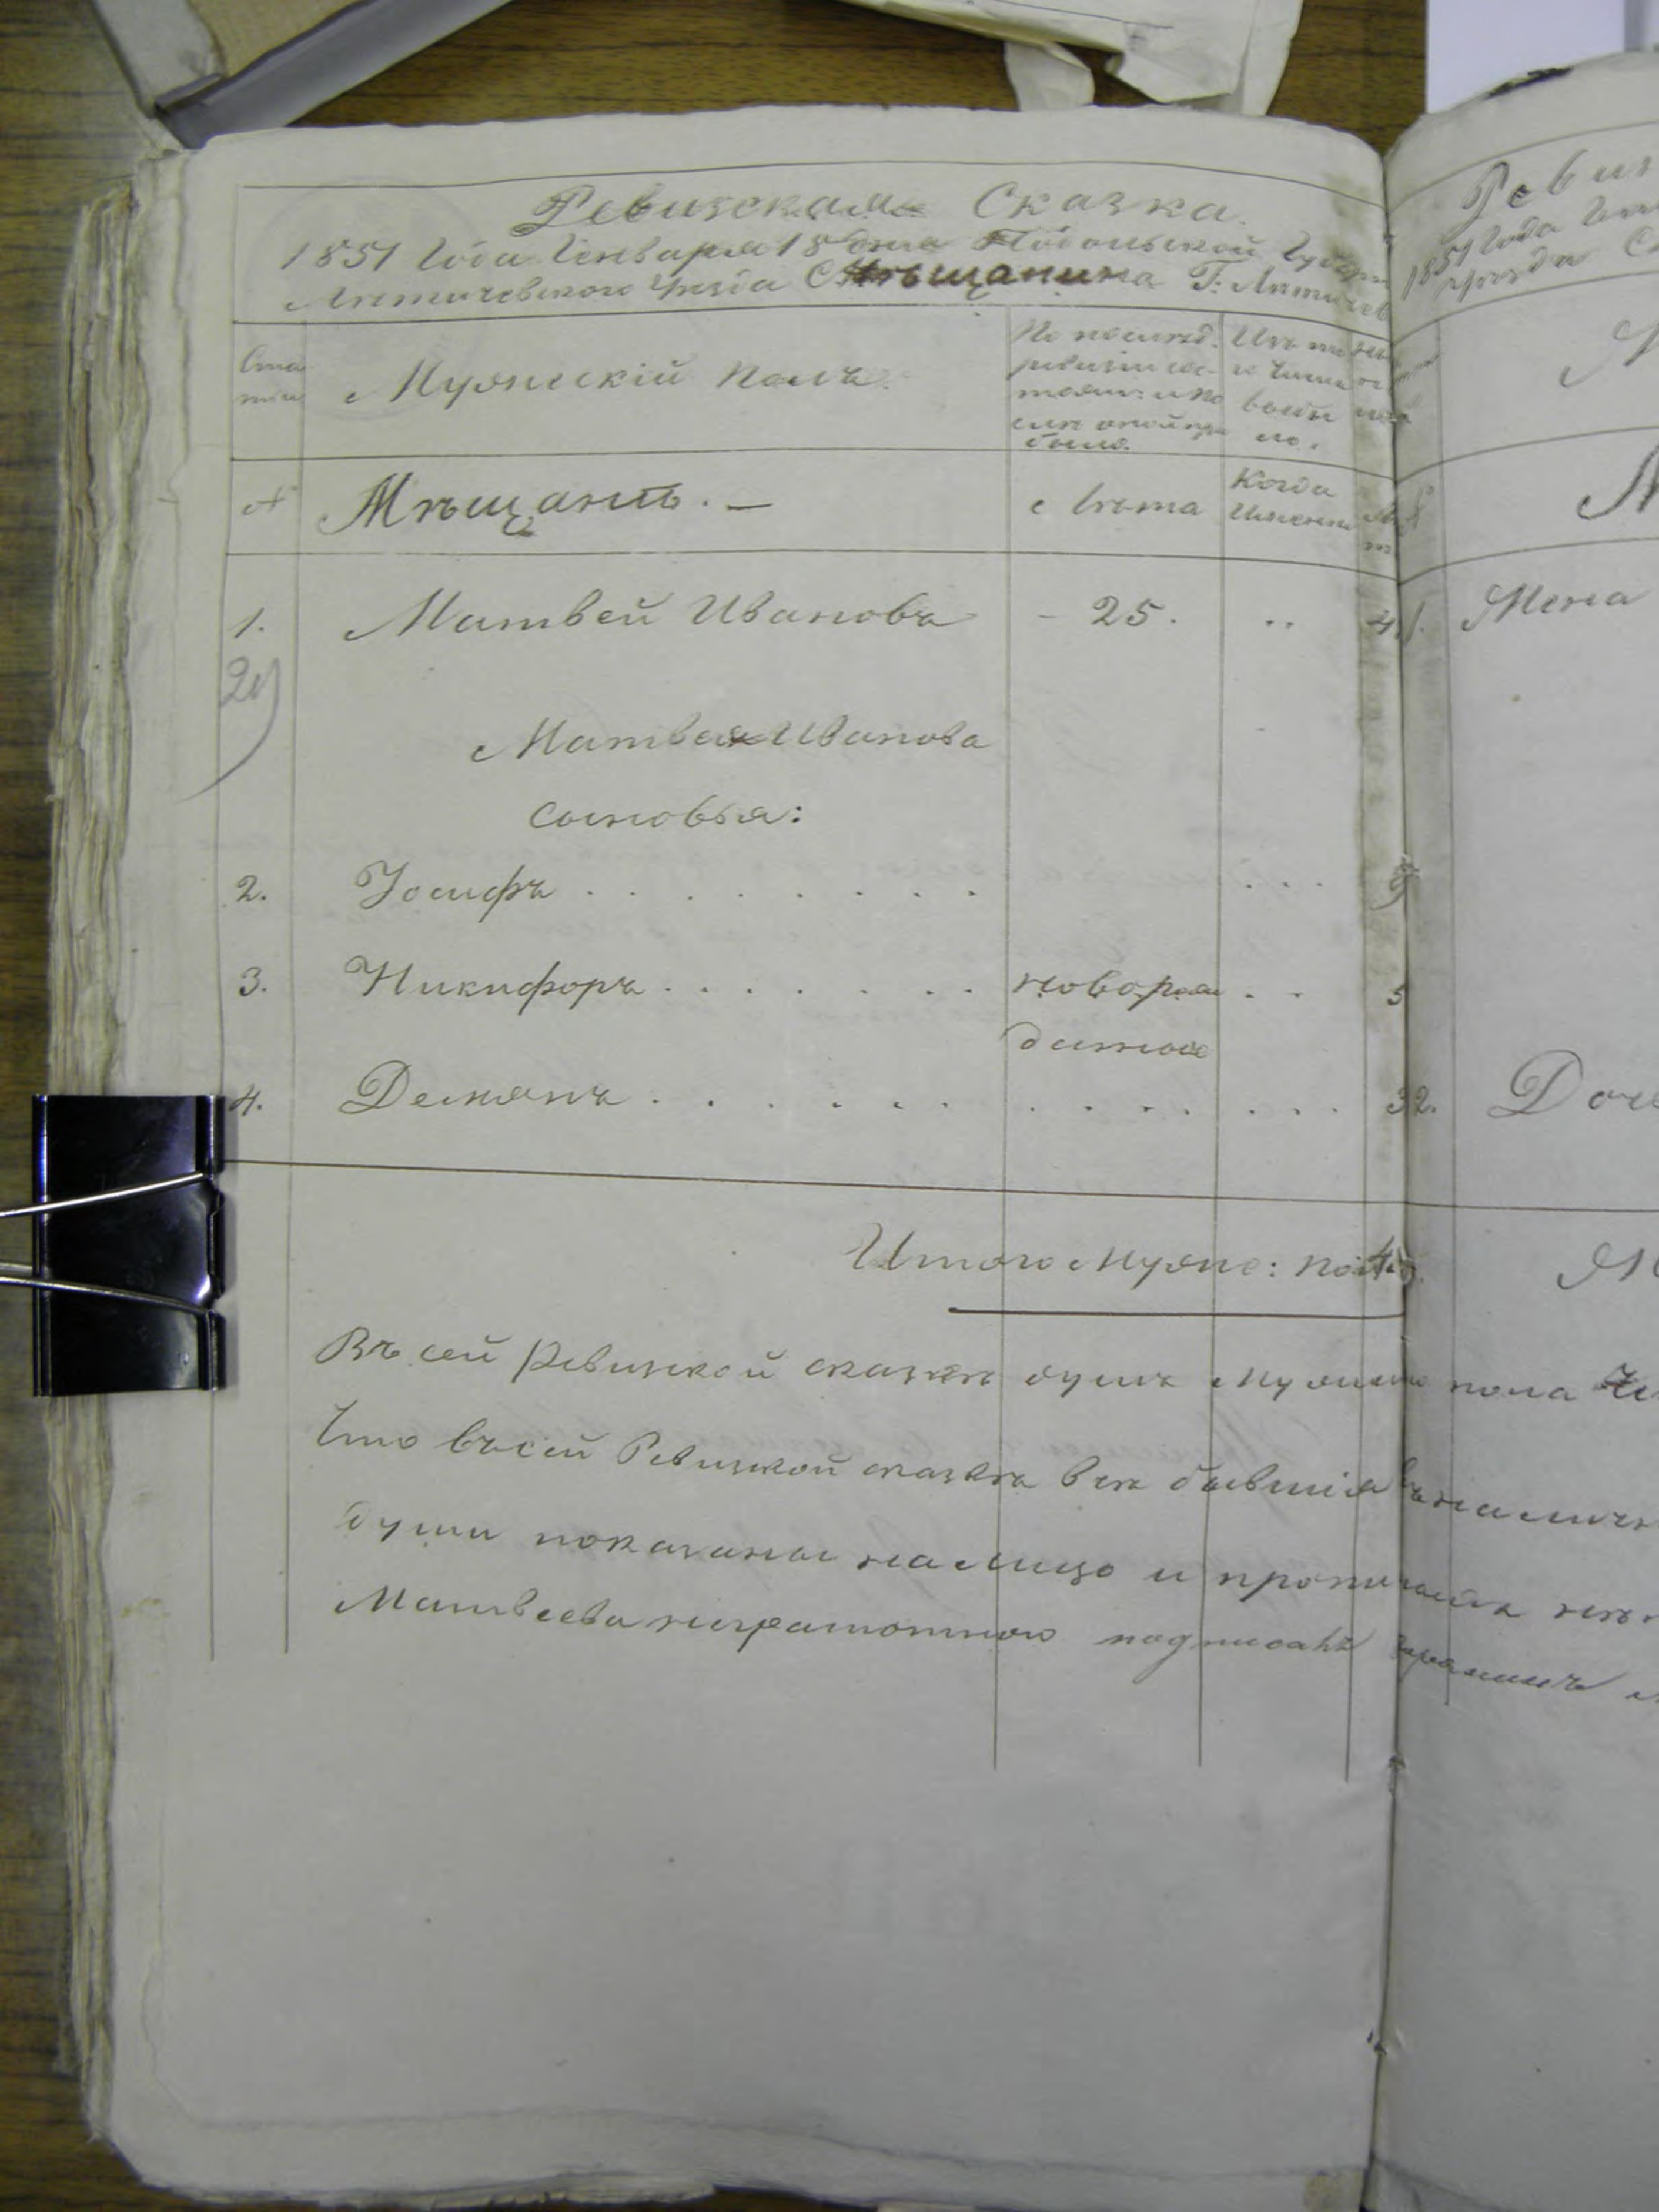 Ревизская Сказка.
1851 Года Генваря 18 дня Подольской Губерн
Летичевского Уезда Мѣщанина Г: Летичев
Мужеский полъ.
По послед. ревизии сос-
тояло и по
сле оной при
было.
Изъ то
го числа
выбы
ло.
№
Мѣщанъ. —
Лѣта
Когда
Именно
1. Матвей Ивановъ - 25. ..
Матвея Иванова
сыновья:
2. Иосифъ . . . . . . .
3. Никифоръ . . . . . . . новорож . . 5
денное
4. Демянъ . . . . . . . . . . . . 3
Итого муже: пол 4
Въ сей Ревизкой сказкѣ душъ мужеска пола
Что въ сей Ревизкой сказкѣ всѣ бывшия въ налич
души показаны на лицо и прописныхъ нѣт
Матвеева неграмотного подписалъ
Ревиз
1851 Года
уезда
1. Жена
2. Доч